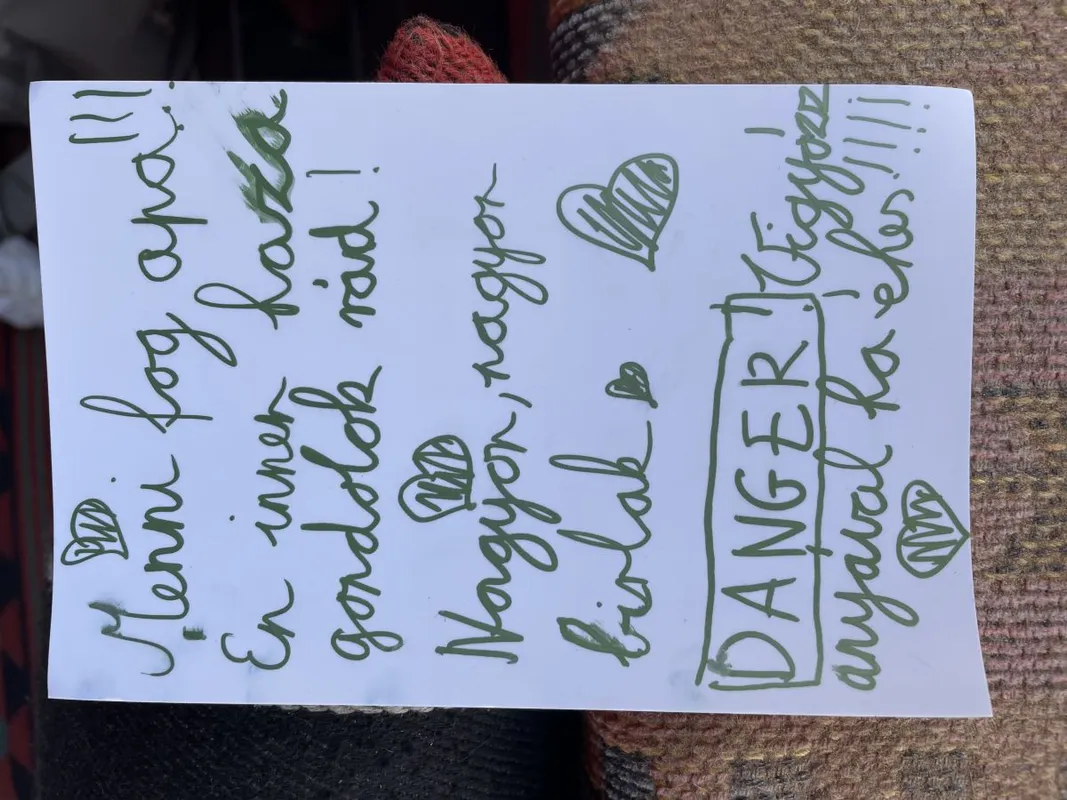 Menni fog apa!!!
En innen haza
gondolok rád!
Nagyon, nagyon
birlak
DANGER! Vigyázz
anyaval ha éhes!!!!!